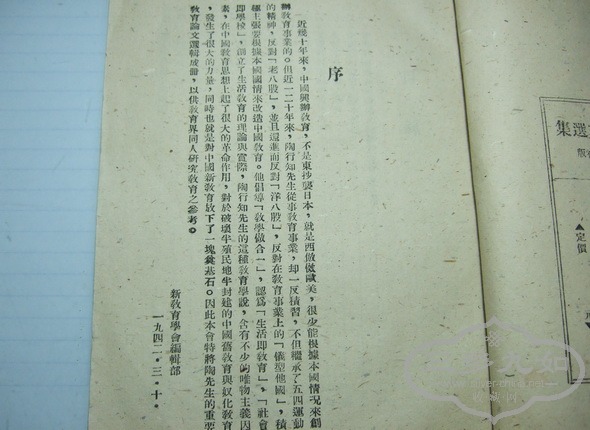 選集
版
▲定價
序
近幾十年來，中國興辦教育，不是東抄襲日本，就是西做倣歐美，很少能根據本國情況來創
辦教育事業的。但近一二十年來，陶行知先生從事教育事業，却一反積習，不但繼承了五四運動
的精神，反對「老八股」，並且還進而反對「洋八股」，反對在教育事業上的「儀型他國」，積
極主張要根據本國國情來改造中國教育。他倡導「教學做合一」，認爲「生活即教育」，「社會
即學校」，創立了生活教育的理論與實際，陶行知先生的這種教育學說，含有不少的唯物主義因
素，在中國教育思想上起了很大的革命作用，對於破壞半殖民地半封建的中國舊教育與奴化教育
，發生了很大的力量，同時也就是對中國新教育放下了一塊奠基石。因此本會特將陶先生的重要
教育論文選輯成冊，以供教育界同人研究教育之參考。
新教育學會編輯部
一九四二．三．十．